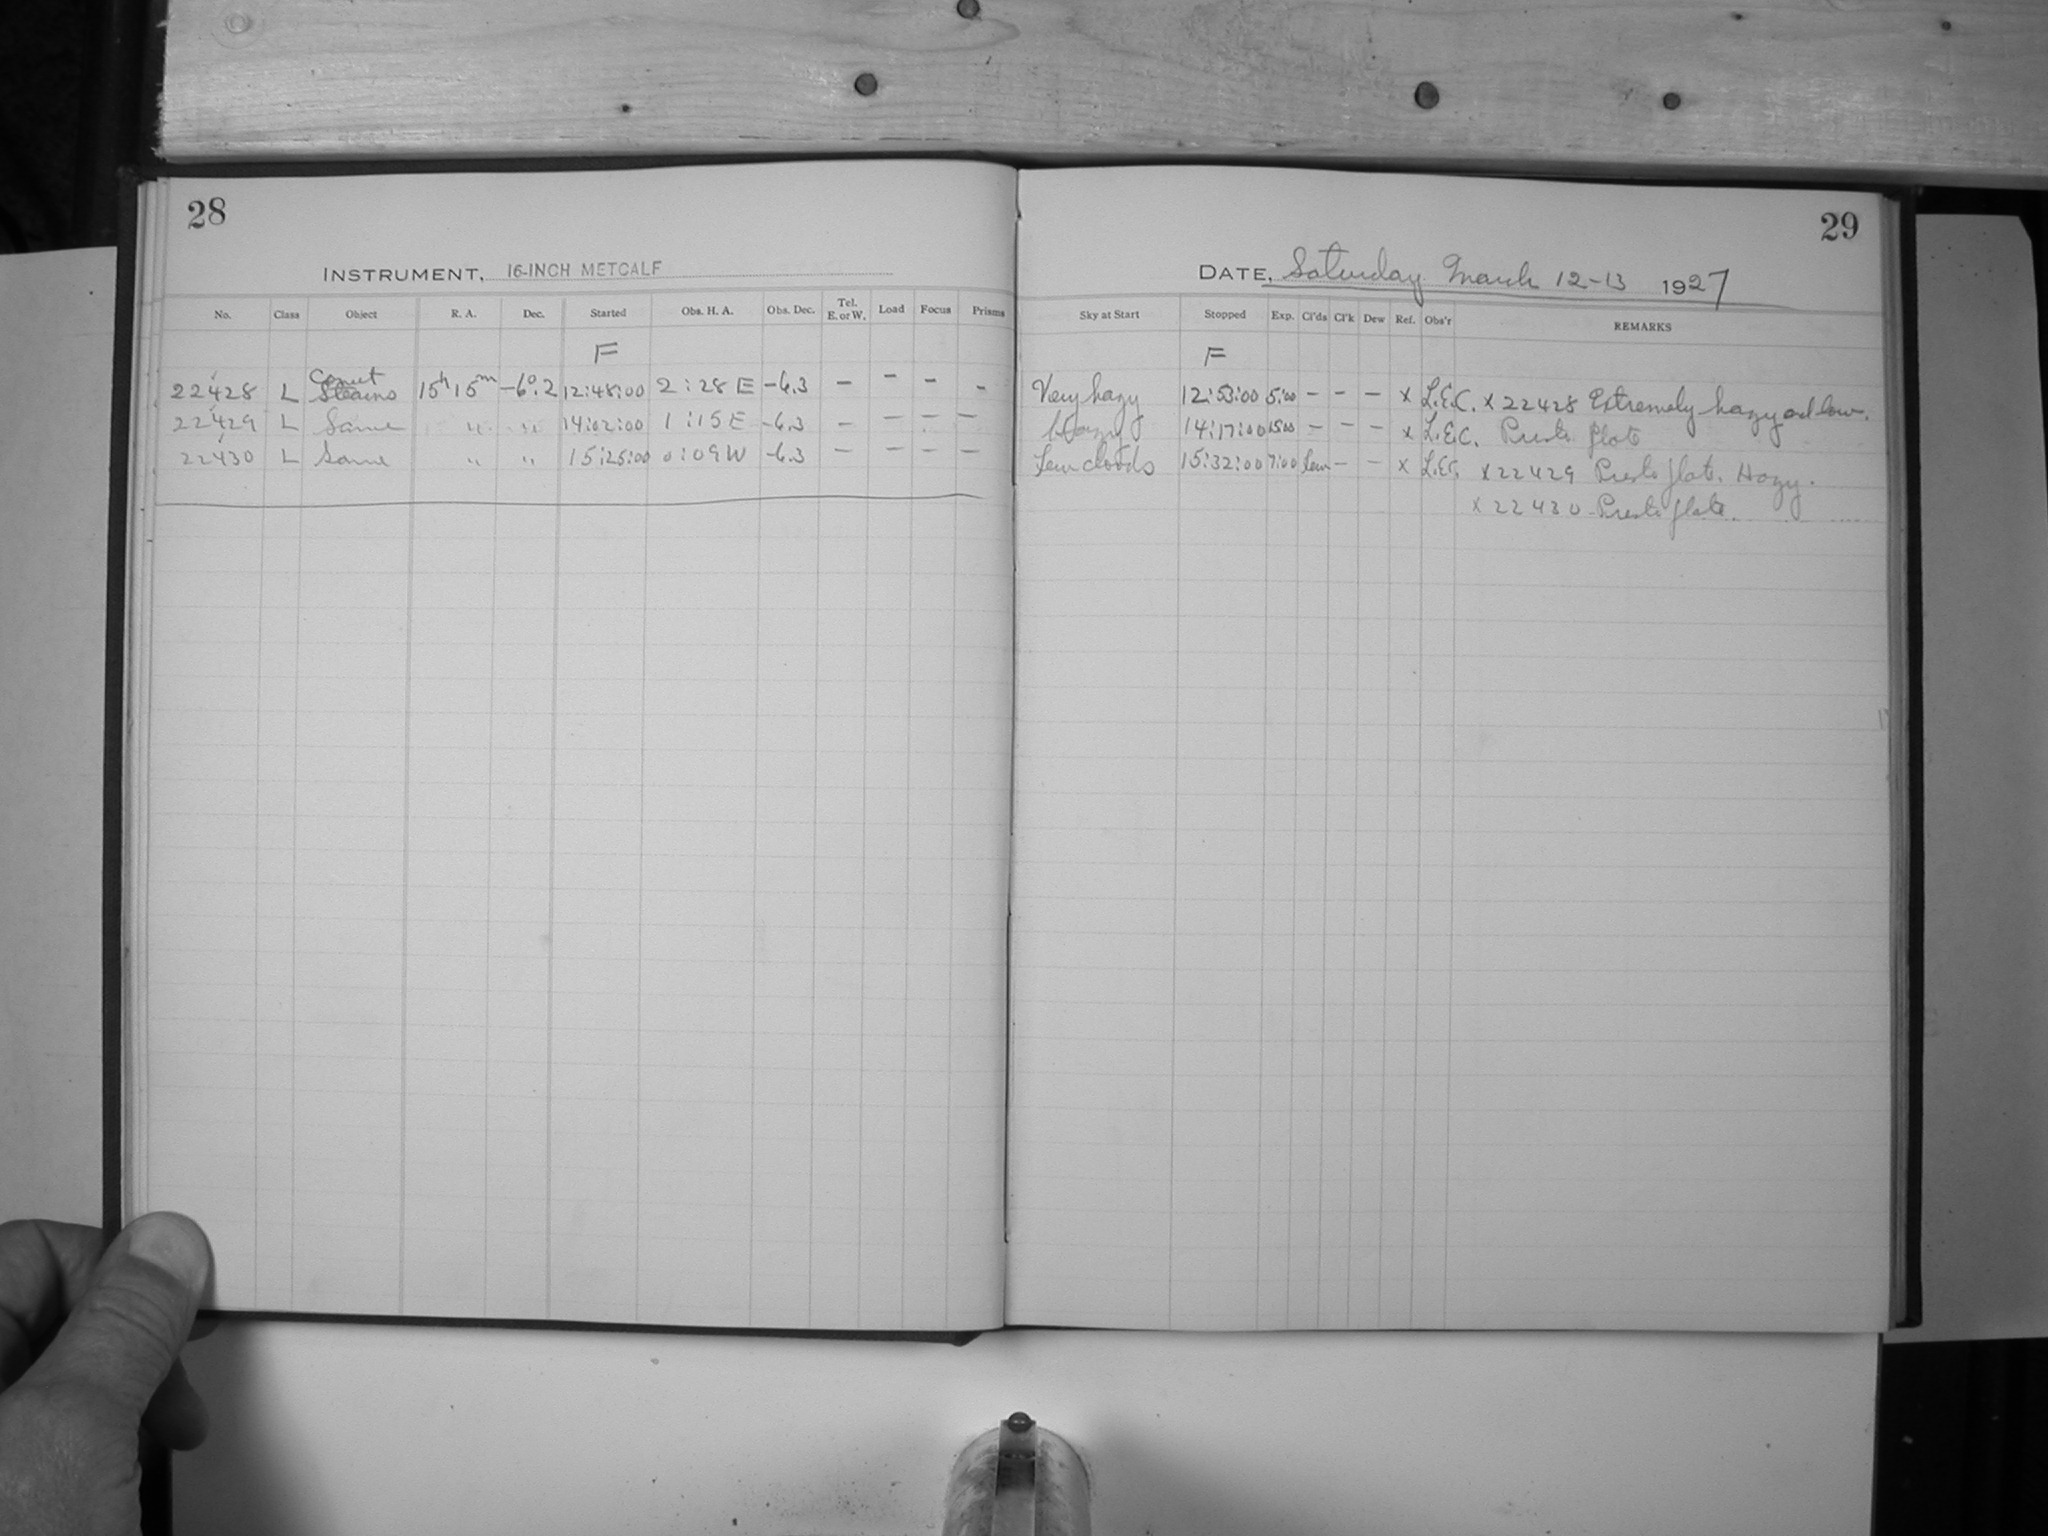 28
INSTRUMENT, 16-INCH METCALF
No. Class Object R. A. Dec. Started Obs. H. A. Obs. Dec. Tel. E. or W. Load Focus Prisms
F
Comet
22428 L Stearns 15h 15m -6°.2 12:48:00 2:28 E -6.3 - - - -
22429 L Same " " 14:02:00 1:15 E -6.3 - - - -
22430 L Same " " 15:25:00 0:09 W -6.3 - - - -
29
DATE, Saturday March 12-13 1927
Sky at Start Stopped Exp. Cl'ds Cl'k Dew Ref. Obs'r REMARKS
F
Very hazy 12:53:00 5:00 - - - x L.E.C. x 22428 Extremely hazy and low.
Hazy 14:17:00 15:00 - - - x L.E.C. Presto plate
Few clouds 15:32:00 7:00 Few - - x L.E.C. x 22429 Presto plate. Hazy.
x 22430 Presto plate.